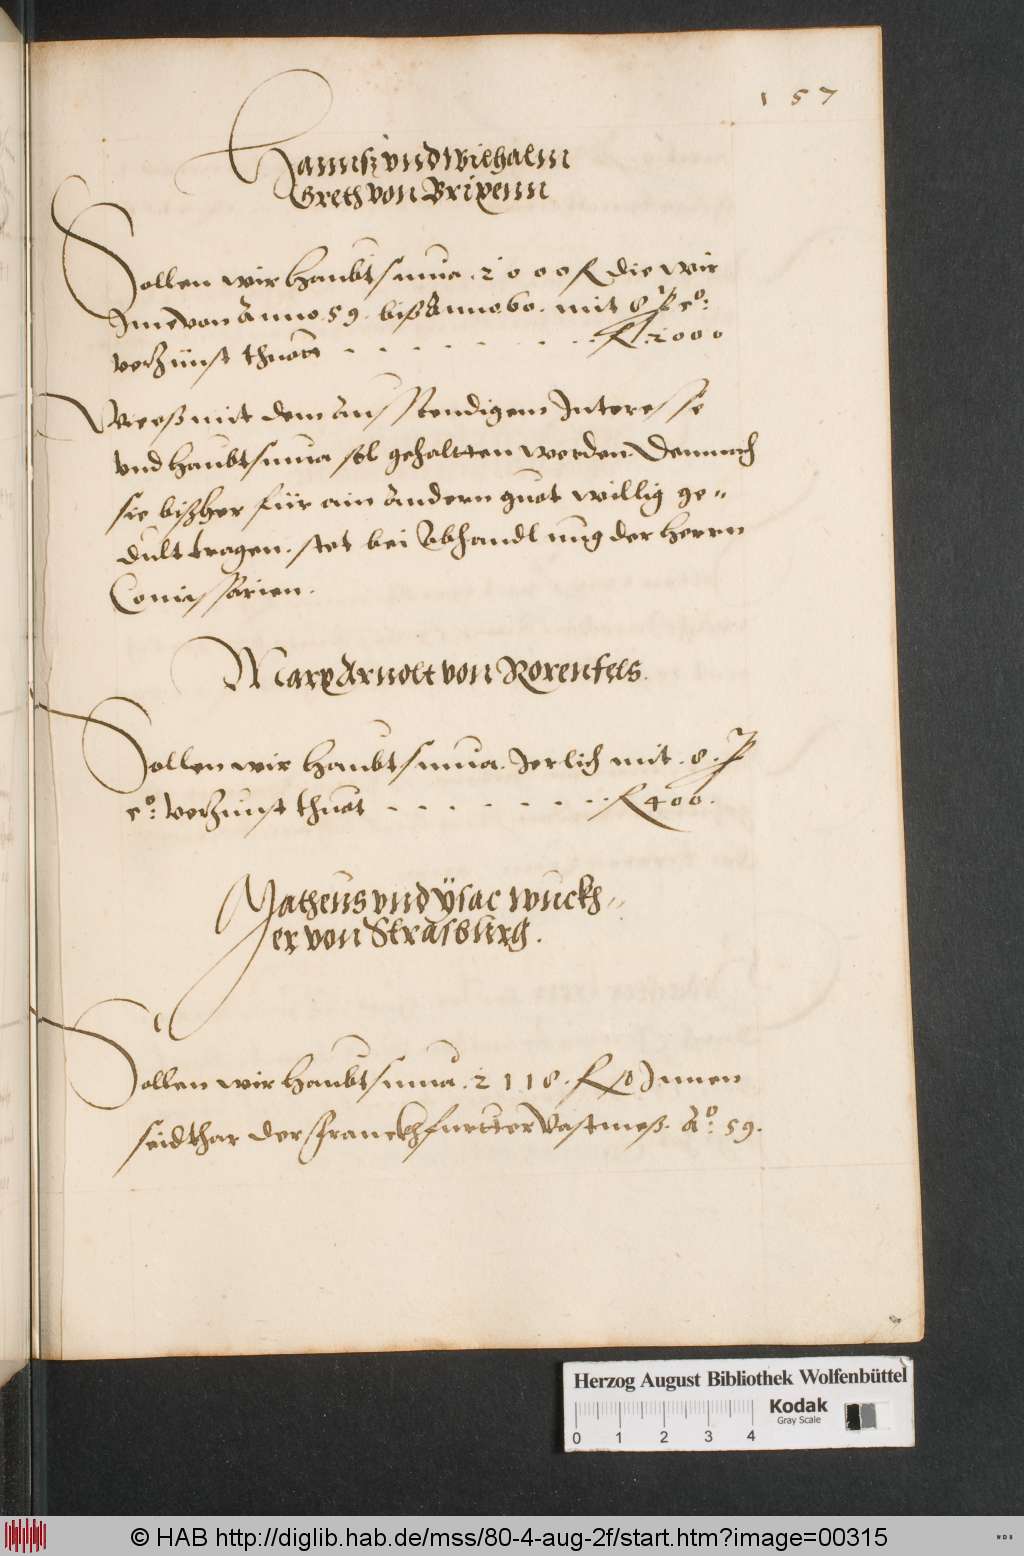 157
Hanns vnd Wilhalm
Greth von Brixenn
Sollen wir haubtsuma . 2000 fl die wir
Jme von Anno . 59 . biß Anno 60 . mit 8 p co:
verzünst thuott - - - - - - - fl 2000
Wie eß mit dem ausstendigem Interesse
vnd haubtsuma sol gehaltten werden Demnach
sie bißher für ain andern guot willig ge-
dult tragen . stet bei Abhandlung der herrn
Comissarien .
Marx Arnolt von Rorenfels .
Sollen wir haubtsuma . Jerlich mit . 8 . p
co: verzünst thuot - - - - - - - fl 400 .
Matheus vnd ÿsac Wuckh-
er von Strasburg .
Sollen wir haubtsuma . 2118 . fl Jnnen
seidthar der Franckhfurtter Vastmeß . Ao: 59 .
Herzog August Bibliothek Wolfenbüttel
Kodak
Gray Scale
0 1 2 3 4
© HAB http://diglib.hab.de/mss/80-4-aug-2f/start.htm?image=00315